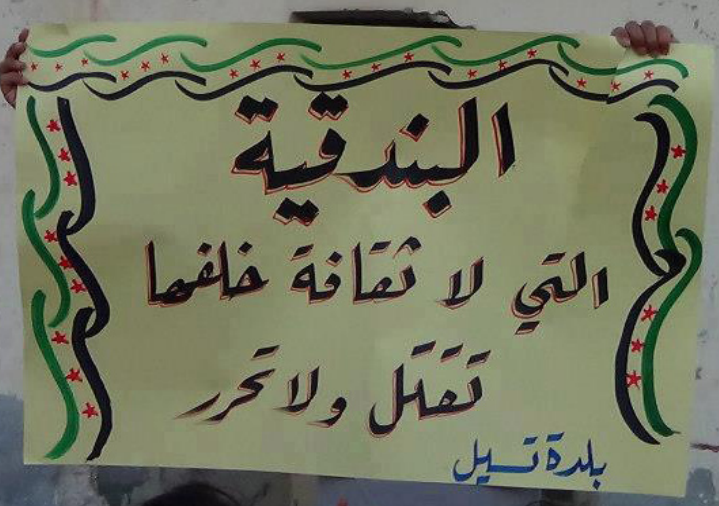 البندقية
التي لا ثقافة خلفها
تقتل ولا تحرر
بلدة تسيل